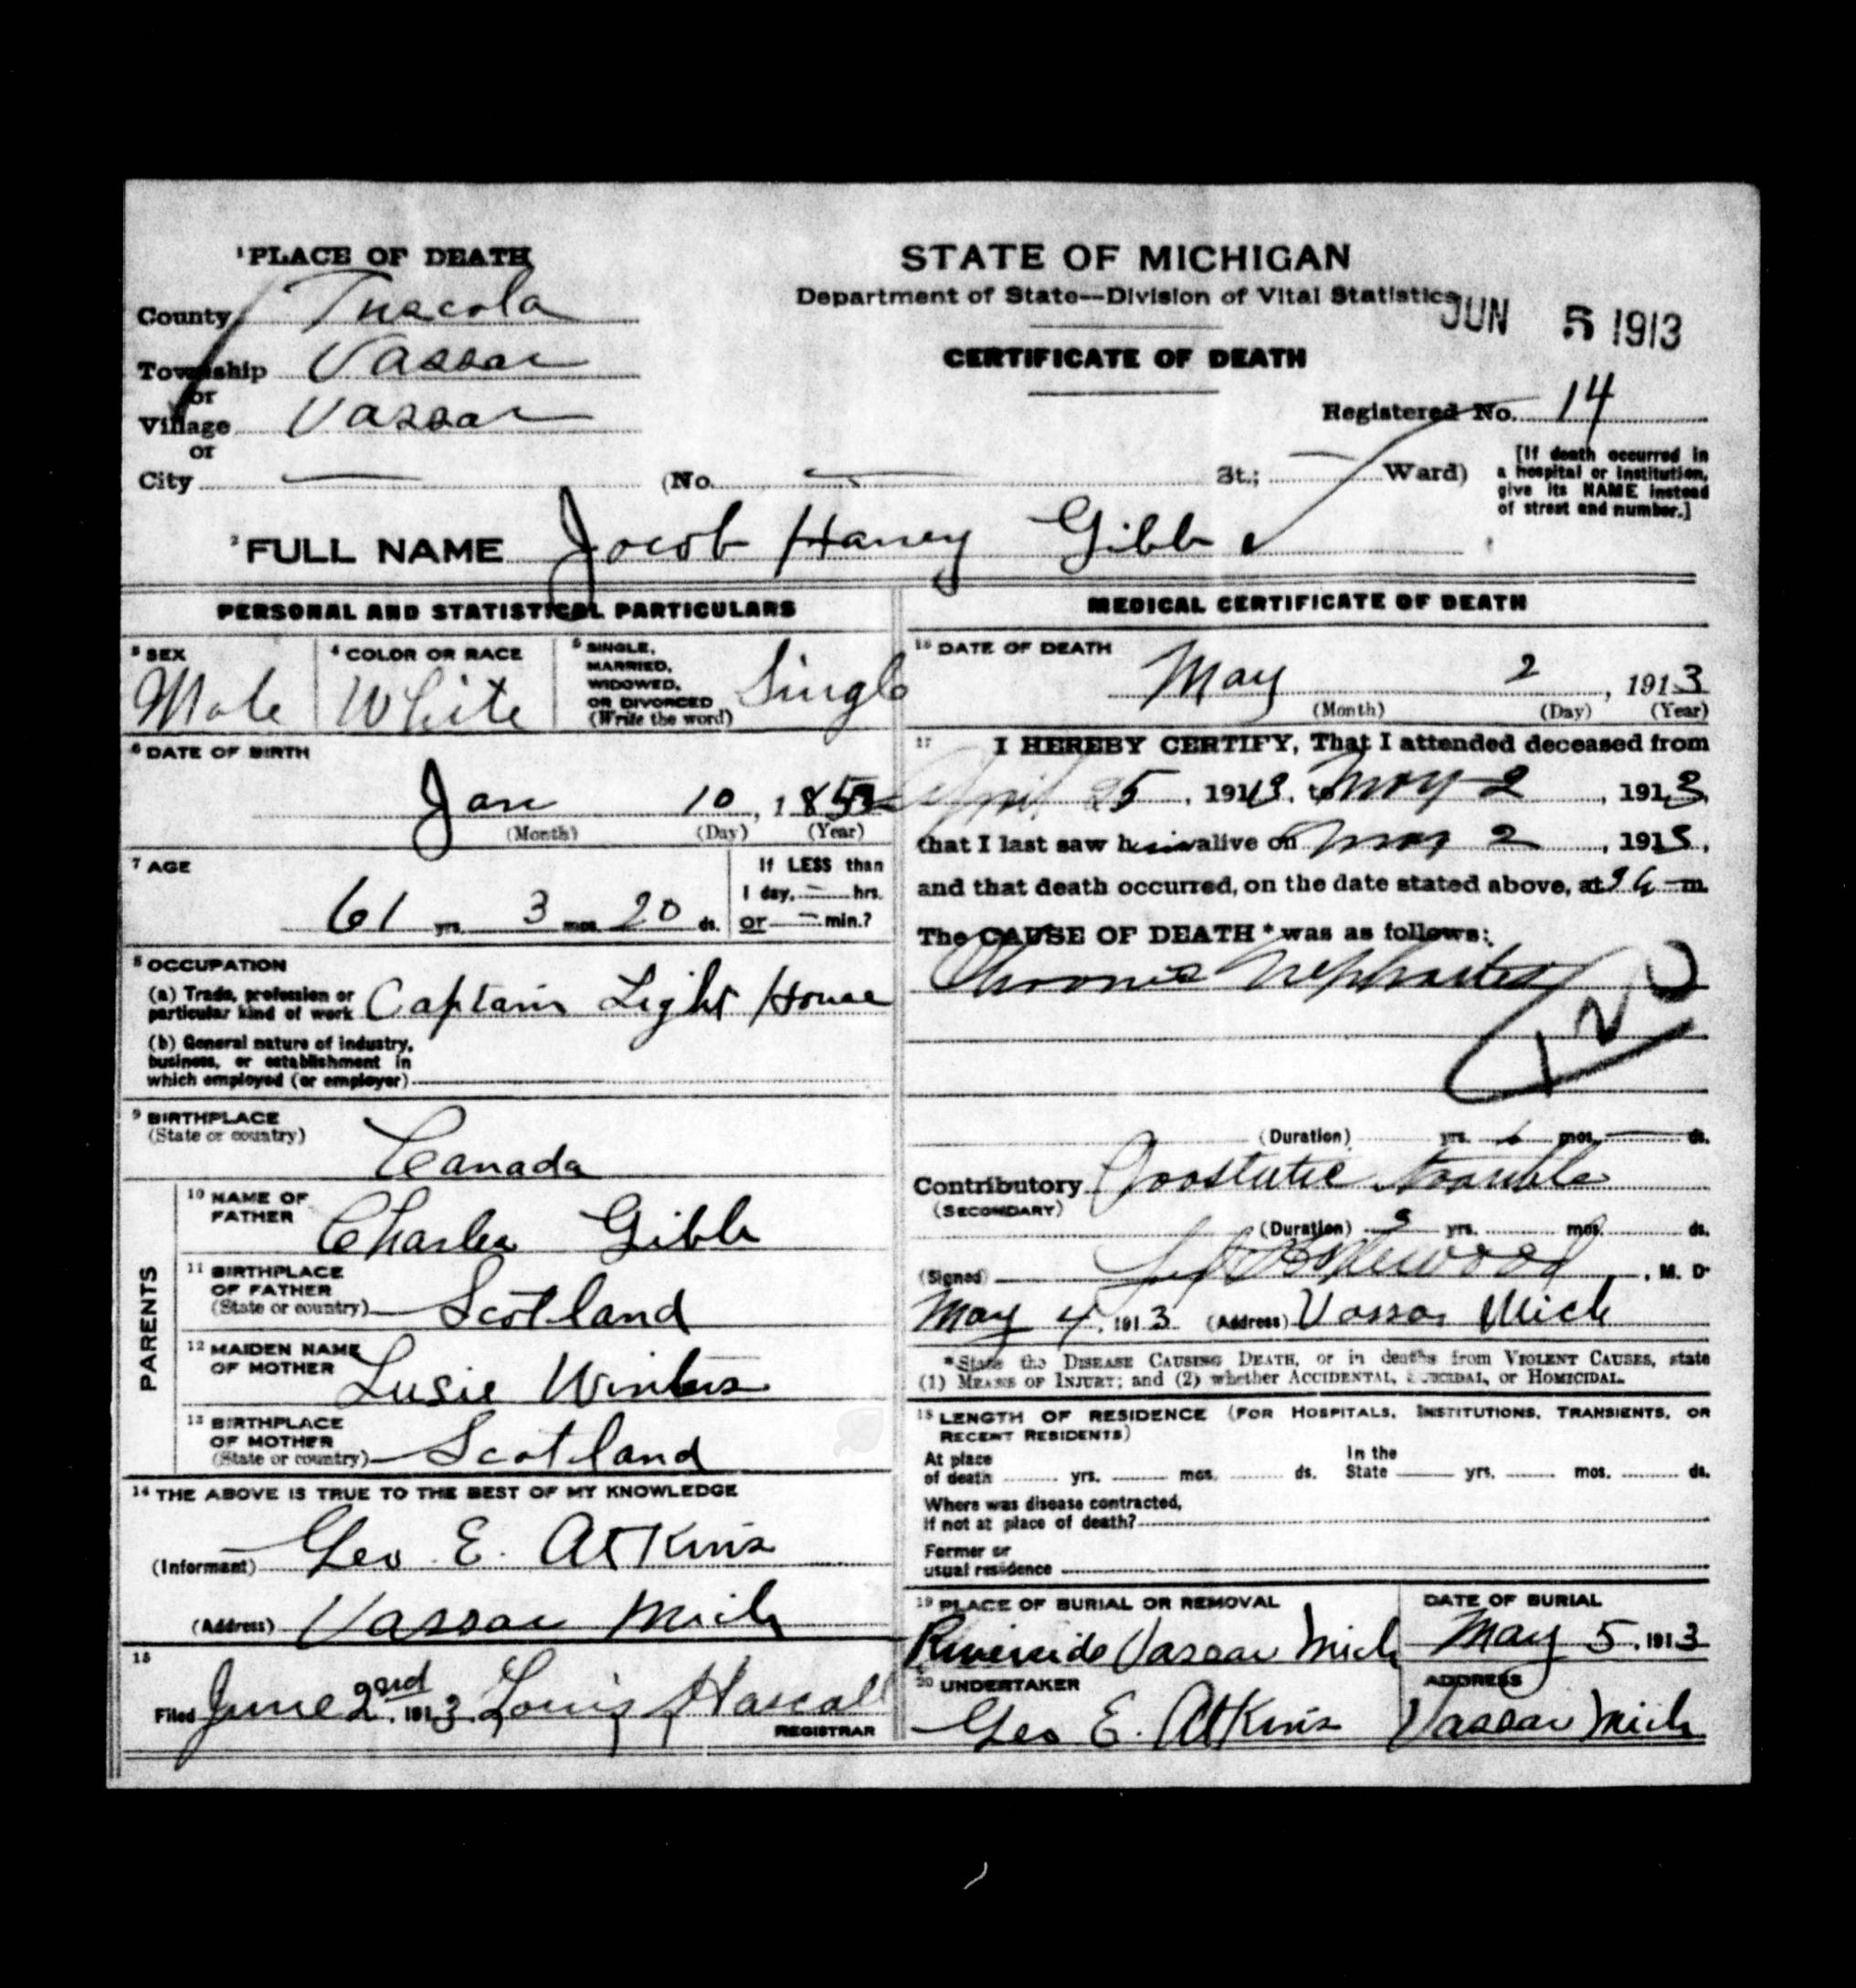 ¹PLACE OF DEATH
STATE OF MICHIGAN
Department of State—Division of Vital Statistics
JUN 5 1913
County Tuscola
Township Vassar
CERTIFICATE OF DEATH
or
Village Vassar
Registered No. 14
or
City — (No. — St.; — Ward)
[If death occurred in
a hospital or institution,
give its NAME instead
of street and number.]
²FULL NAME Jacob Harvey Gibb
PERSONAL AND STATISTICAL PARTICULARS
³ SEX
Male
⁴ COLOR OR RACE
White
⁵ SINGLE,
MARRIED,
WIDOWED,
OR DIVORCED
(Write the word)
Single
⁶ DATE OF BIRTH
Jan 10, 185
(Month) (Day) (Year)
⁷ AGE
61 yrs. 3 mos. 20 ds.
If LESS than
1 day, — hrs.
or — min.?
⁸ OCCUPATION
(a) Trade, profession or
particular kind of work Captain Light House
(b) General nature of industry,
business, or establishment in
which employed (or employer)
⁹ BIRTHPLACE
(State or country)
Canada
PARENTS
¹⁰ NAME OF
FATHER
Charles Gibb
¹¹ BIRTHPLACE
OF FATHER
(State or country) Scotland
¹² MAIDEN NAME
OF MOTHER
Lusie Winters
¹³ BIRTHPLACE
OF MOTHER
(State or country) Scotland
¹⁴ THE ABOVE IS TRUE TO THE BEST OF MY KNOWLEDGE
(Informant) Geo. E. Atkins
(Address) Vassar Mich
¹⁵
Filed June 2nd, 1913 Louis Hascall
REGISTRAR
MEDICAL CERTIFICATE OF DEATH
¹⁶ DATE OF DEATH
May 2, 1913
(Month) (Day) (Year)
¹⁷ I HEREBY CERTIFY, That I attended deceased from
April 25, 1913, to May 2, 1913,
that I last saw him alive on May 2, 1913,
and that death occurred, on the date stated above, at m.
The CAUSE OF DEATH * was as follows:
Chronic Nephritis
120
(Duration) yrs. mos. — ds.
Contributory Prostatic trouble
(SECONDARY)
(Duration) yrs. mos. ds.
(Signed) , M. D.
May 4, 1913 (Address) Vassar Mich
*State the DISEASE CAUSING DEATH, or in deaths from VIOLENT CAUSES, state
(1) MEANS OF INJURY; and (2) whether ACCIDENTAL, SUICIDAL, or HOMICIDAL.
¹⁸ LENGTH OF RESIDENCE (FOR HOSPITALS, INSTITUTIONS, TRANSIENTS, OR
RECENT RESIDENTS)
At place
of death yrs. mos. ds.
In the
State yrs. mos. ds.
Where was disease contracted,
if not at place of death?
Former or
usual residence
¹⁹ PLACE OF BURIAL OR REMOVAL
Riverside Vassar Mich
DATE OF BURIAL
May 5, 1913
²⁰ UNDERTAKER
Geo E. Atkins
ADDRESS
Vassar Mich